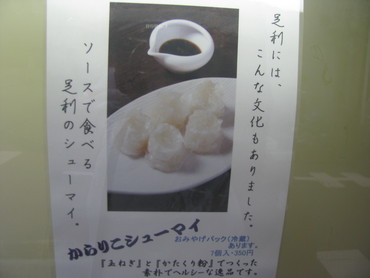 足利には、
こんな文化もありました。
ソースで食べる
足利のシューマイ。
からりこシューマイ
おみやげパック(冷蔵)
あります。
7個入・350円
『玉ねぎ』と『かたくり粉』でつくった
素朴でヘルシーな逸品です。